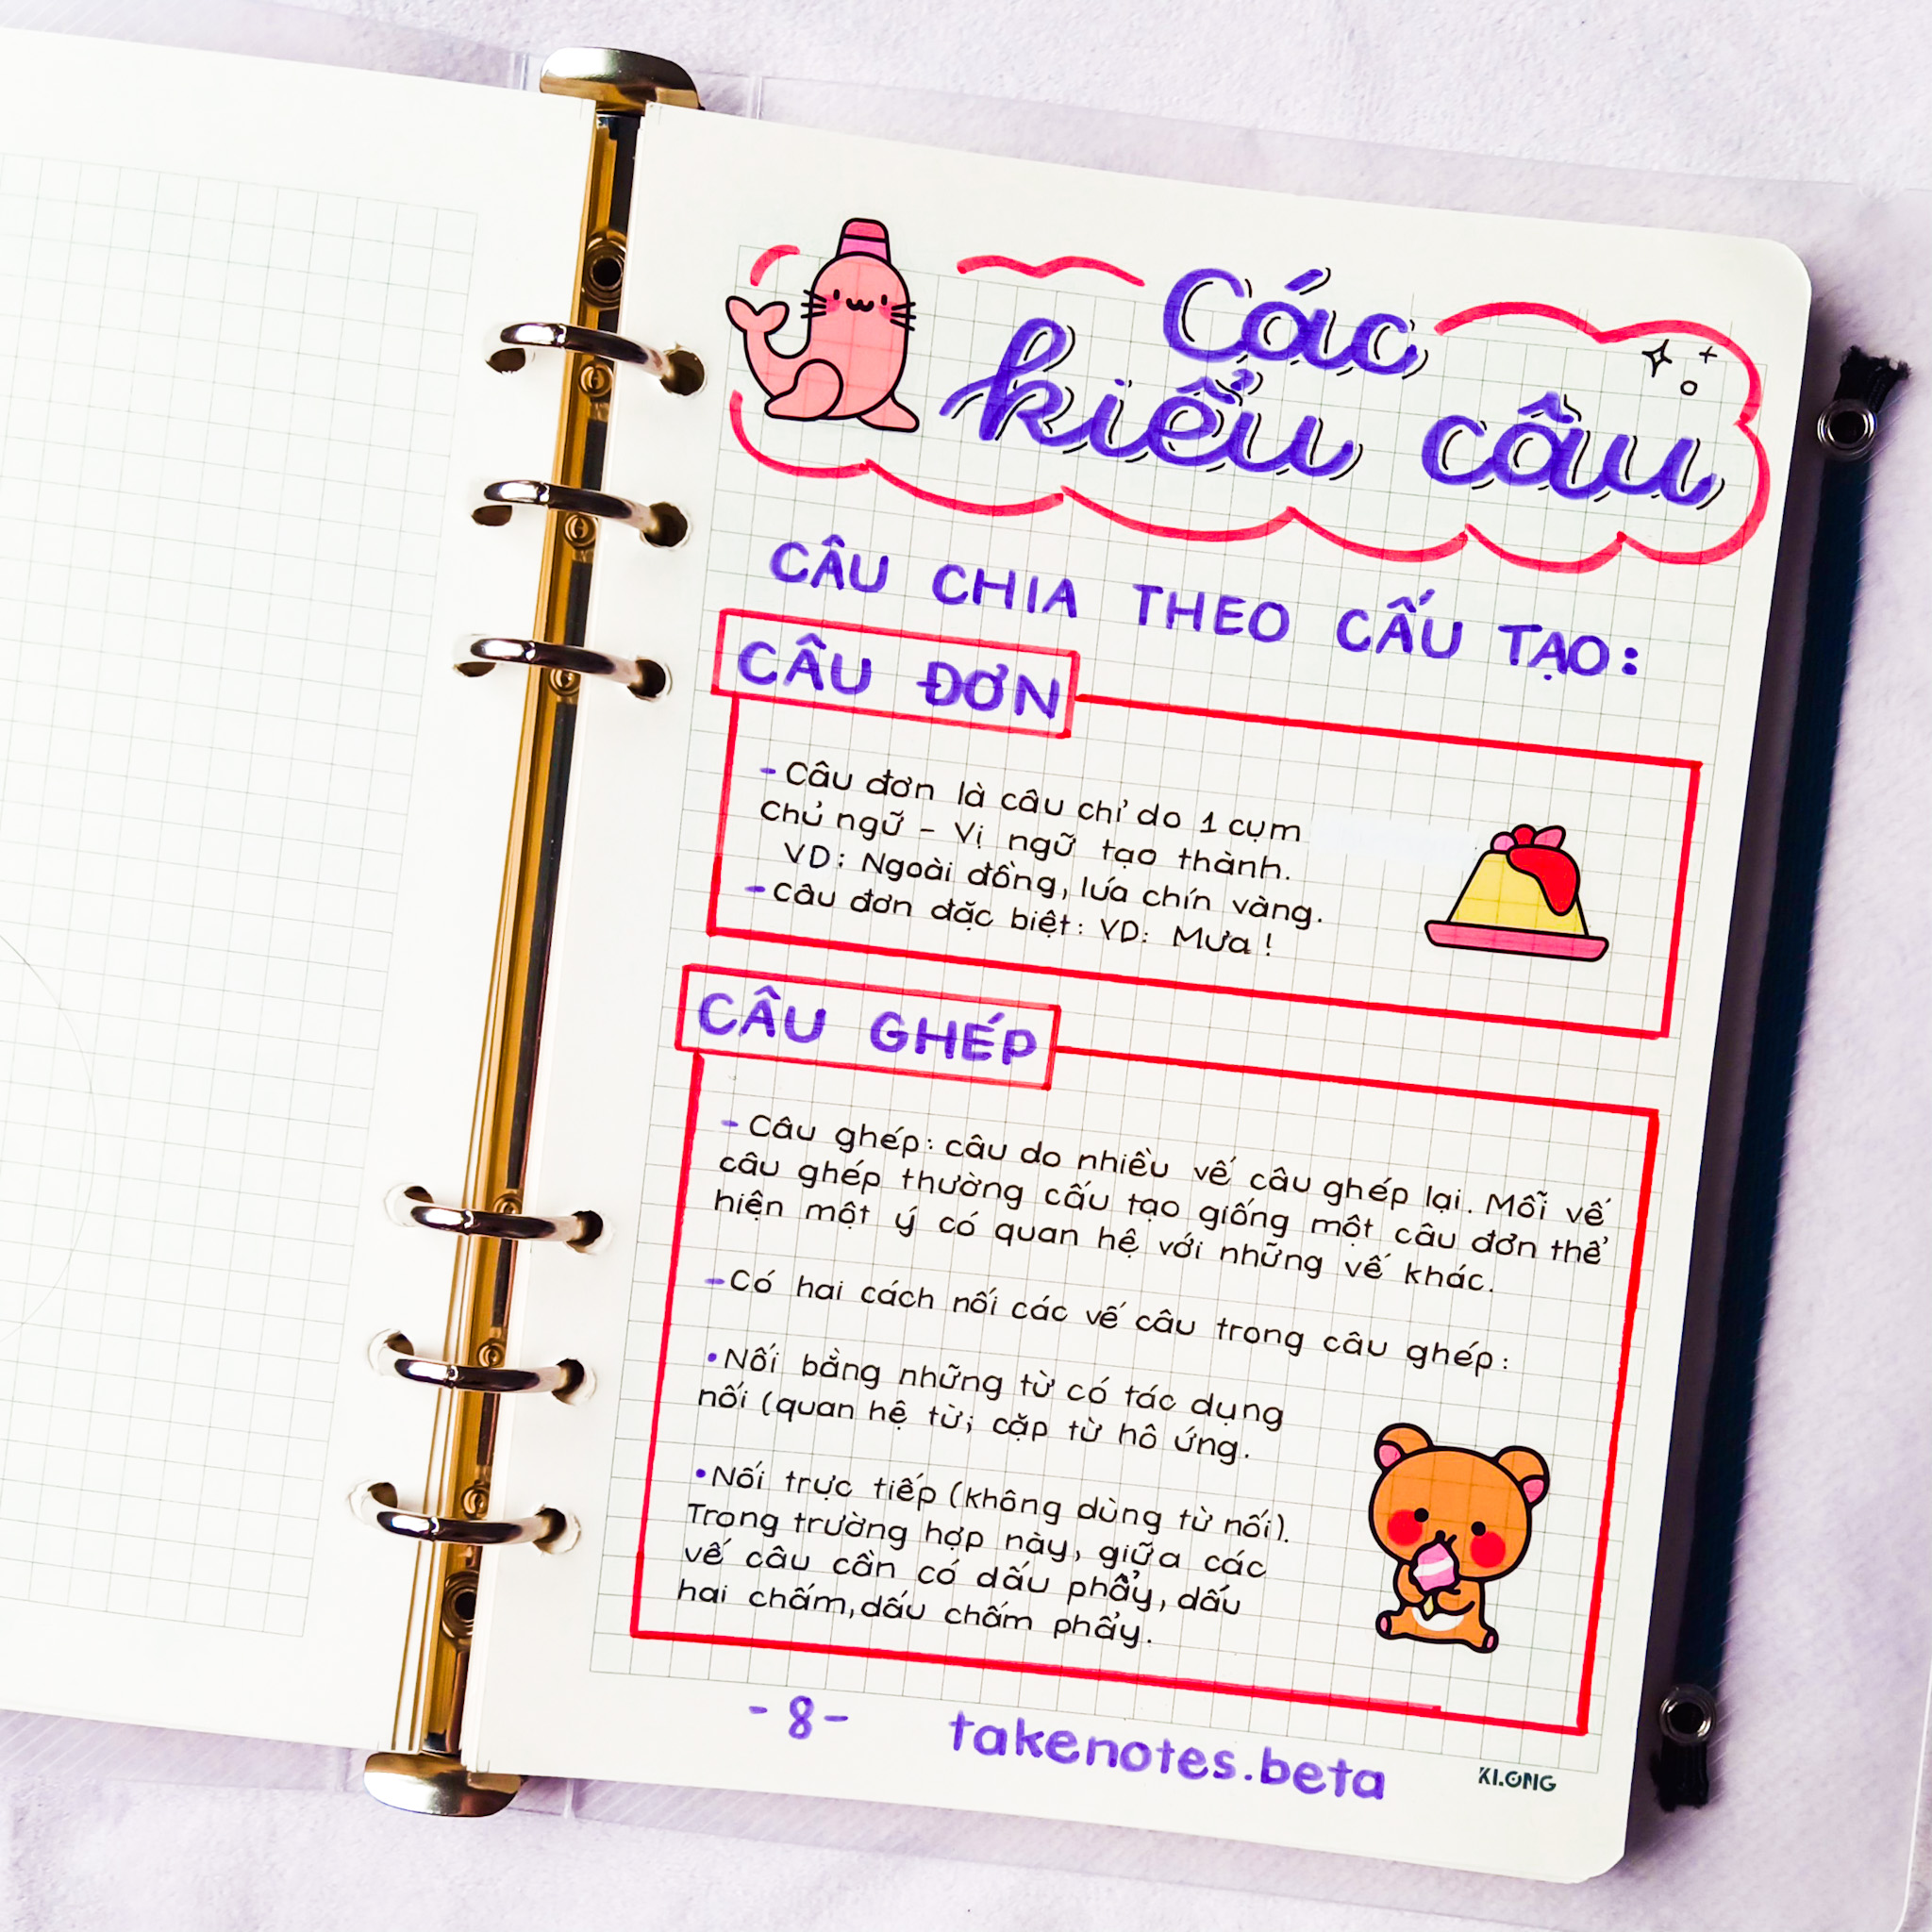 Các
kiểu câu
CÂU CHIA THEO CẤU TẠO:
CÂU ĐƠN
- Câu đơn là câu chỉ do 1 cụm
Chủ ngữ - Vị ngữ tạo thành.
VD: Ngoài đồng, lúa chín vàng.
- Câu đơn đặc biệt: VD: Mưa!
CÂU GHÉP
- Câu ghép: câu do nhiều vế câu ghép lại. Mỗi vế
câu ghép thường cấu tạo giống một câu đơn thể
hiện một ý có quan hệ với những vế khác.
- Có hai cách nối các vế câu trong câu ghép:
• Nối bằng những từ có tác dụng
nối (quan hệ từ; cặp từ hô ứng.
• Nối trực tiếp (không dùng từ nối).
Trong trường hợp này, giữa các
vế câu cần có dấu phẩy, dấu
hai chấm, dấu chấm phẩy.
- 8 -
takenotes.beta
KLONG